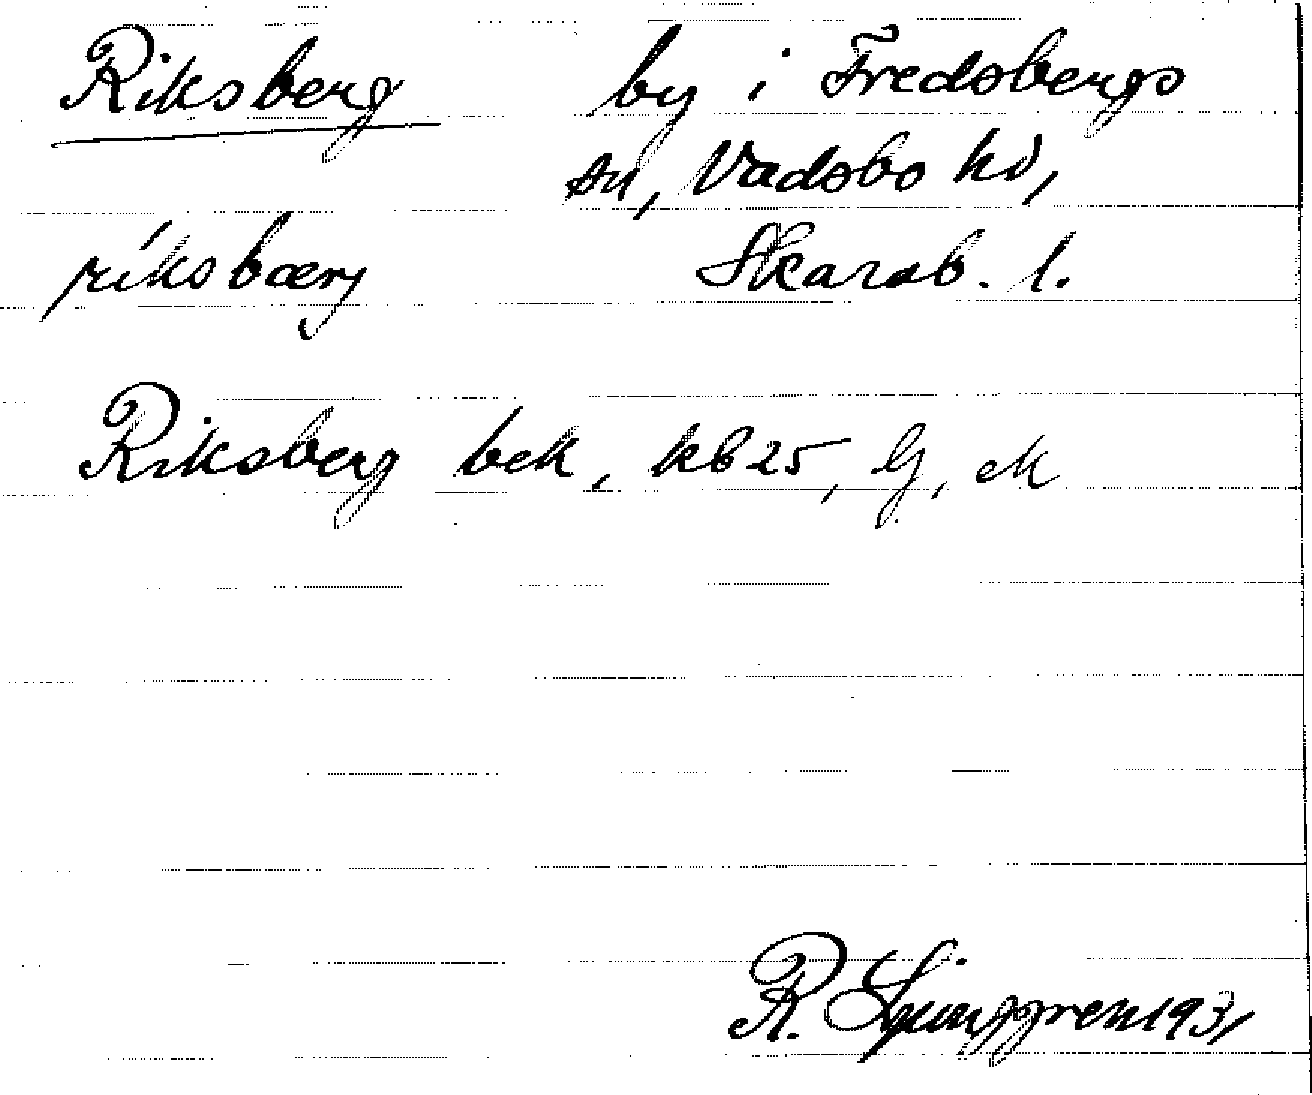 Riksberg by i Fredsbergs
sn, Vadsbo hd,
ríksbærj Skarab. l.
Riksberg bek, kb 25, G, ek
R. Ljunggren 1931